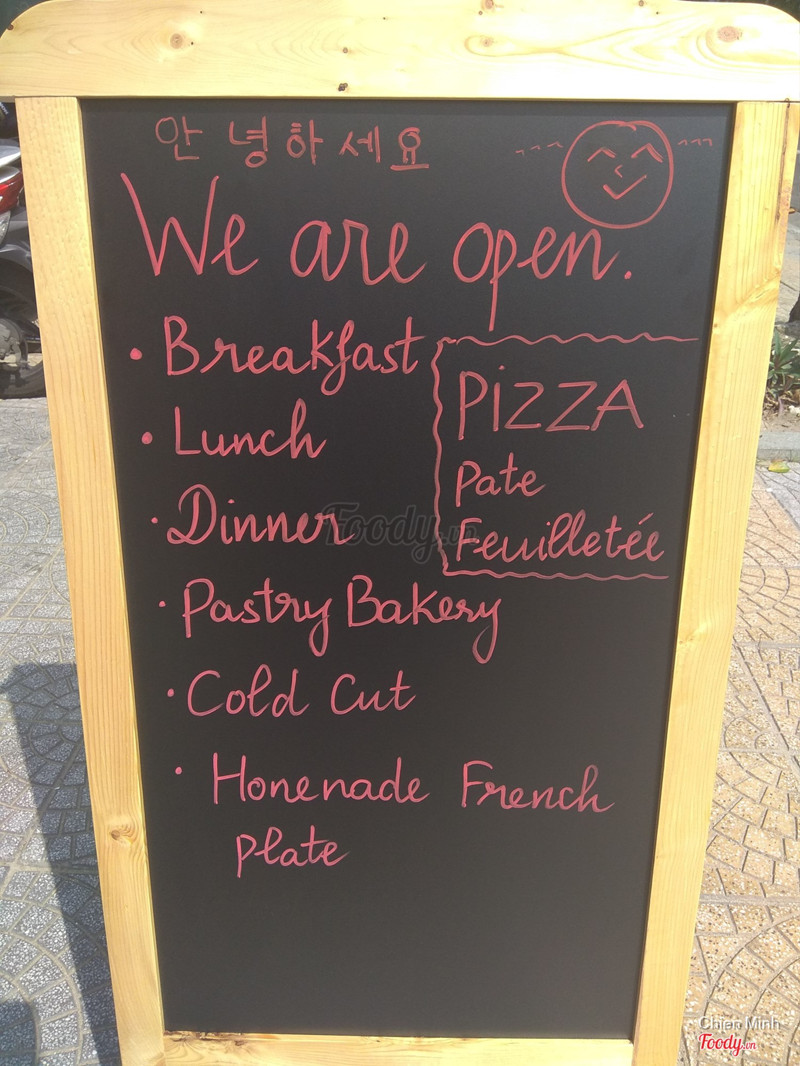 안녕하세요
We are open.
• Breakfast
• Lunch
• Dinner
PIZZA
Pate
Feuilletée
• Pastry Bakery
• Cold Cut
• Honenade French
plate
Foody.vn
Chien Minh
Foody.vn